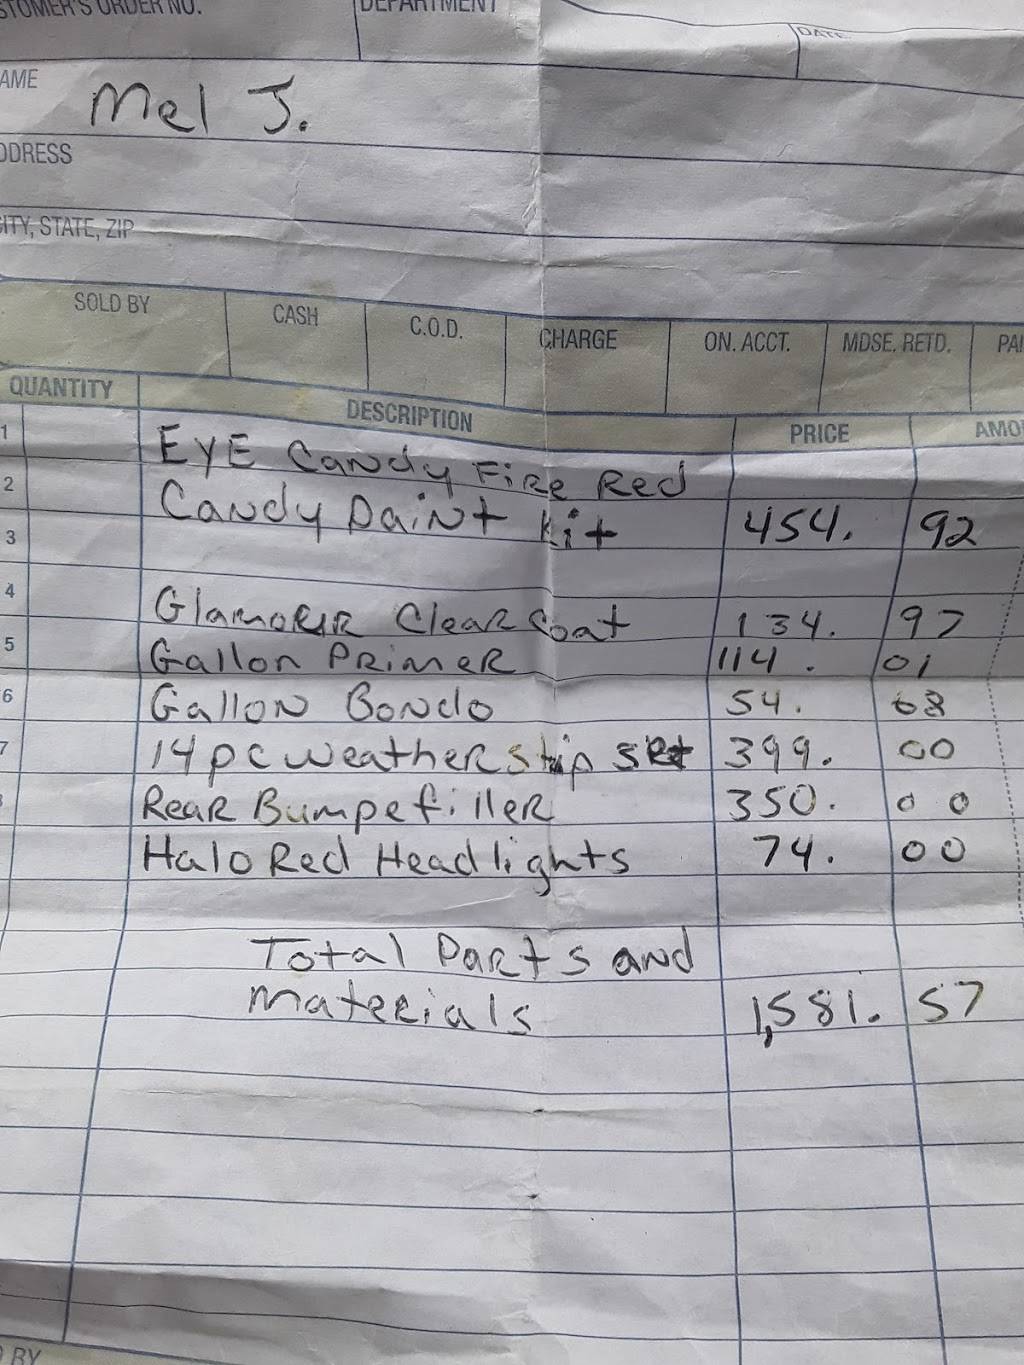 STOMER'S ORDER NO. DEPARTMENT DATE
AME Mel J.
DDRESS
CITY, STATE, ZIP
SOLD BY CASH C.O.D. CHARGE ON. ACCT. MDSE. RETD. PAI
QUANTITY DESCRIPTION PRICE AMO
1 EYE Candy Fire Red
2 Candy Paint Kit 454. 92
3
4 Glamour Clear Coat 134. 97
5 Gallon Primer 114. 01
6 Gallon Bondo 54. 68
7 14 pc weather stip set 399. 00
Rear Bumpe filler 350. 00
Halo Red Headlights 74. 00
Total Parts and
materials 1,581. 57
D BY